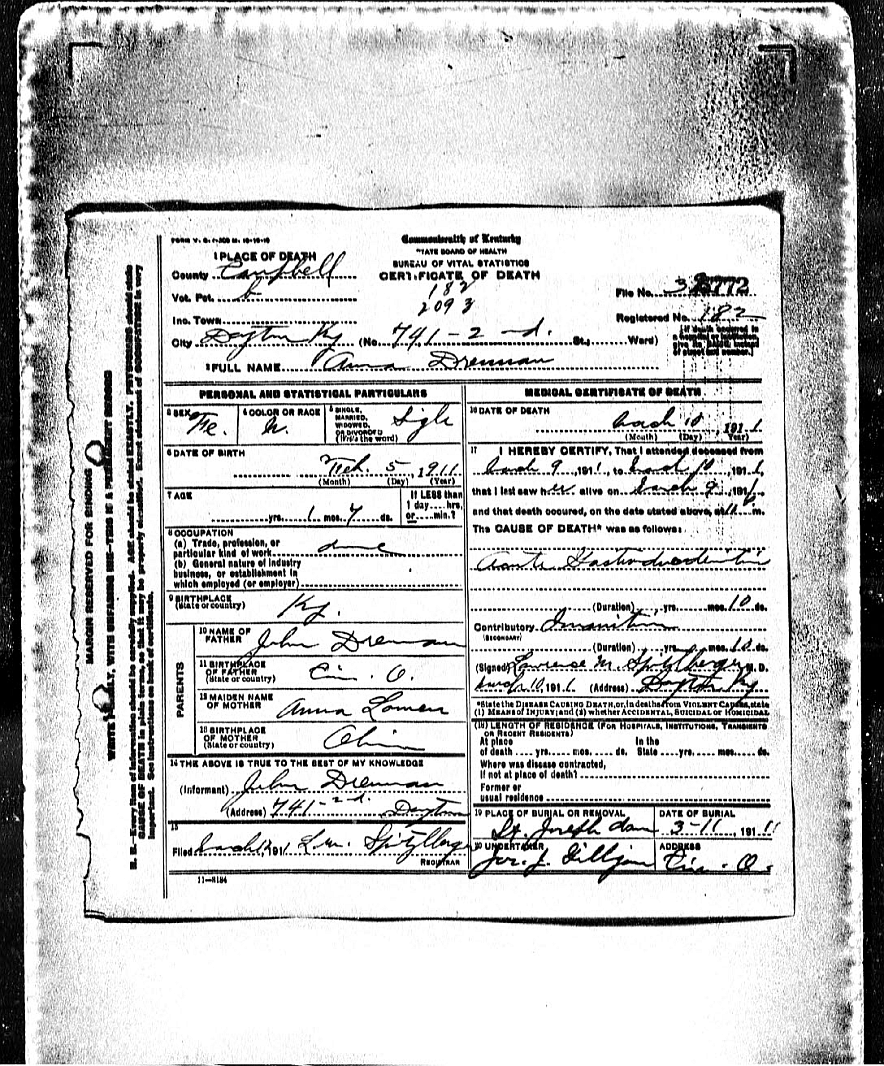 Commonwealth of Kentucky
STATE BOARD OF HEALTH
BUREAU OF VITAL STATISTICS
CERTIFICATE OF DEATH
1 PLACE OF DEATH
County Campbell
Vot. Pct. 6
182
2093
File No.
Registered No. 182
Inc. Town
City Dayton Ky (No. 741-2-d. St.; Ward)
2 FULL NAME Anna Drennan
PERSONAL AND STATISTICAL PARTICULARS
3 SEX Fe.
4 COLOR OR RACE W.
5 SINGLE, MARRIED, WIDOWED, OR DIVORCED (Write the word) Sigle
6 DATE OF BIRTH
Feb. 5, 1911
(Month) (Day) (Year)
7 AGE
yrs. 1 mos. 7 ds.
If LESS than
1 day hrs.
or min.?
8 OCCUPATION
(a) Trade, profession, or
particular kind of work
(b) General nature of industry
business, or establishment in
which employed (or employer)
9 BIRTHPLACE
(State or country) Ky.
PARENTS
10 NAME OF
FATHER John Drennan
11 BIRTHPLACE
OF FATHER
(State or country) Cin. O.
12 MAIDEN NAME
OF MOTHER Anna
13 BIRTHPLACE
OF MOTHER
(State or country)
14 THE ABOVE IS TRUE TO THE BEST OF MY KNOWLEDGE
(Informant) John Drennan
(Address) 741-2d. Dayton
15
Filed 191 1 L. M. Spitzlberger
REGISTRAR
11-3184
MEDICAL CERTIFICATE OF DEATH
16 DATE OF DEATH
March 10, 1911
(Month) (Day) (Year)
17 I HEREBY CERTIFY, That I attended deceased from
March 9, 1911, to March 10, 1911,
that I last saw her alive on March 9, 1911,
and that death occurred, on the date stated above, at m.
The CAUSE OF DEATH* was as follows:
(Duration) yrs. mos. 10 ds.
Contributory Inanition
(SECONDARY)
(Duration) yrs. mos. 10 ds.
(Signed) Lawrence M. Spitzlberger M. D.
March 10, 1911 (Address) Dayton Ky
*State the DISEASE CAUSING DEATH, or, in deaths from VIOLENT CAUSES, state
(1) MEANS OF INJURY; and (2) whether ACCIDENTAL, SUICIDAL OR HOMICIDAL
(18) LENGTH OF RESIDENCE (FOR HOSPITALS, INSTITUTIONS, TRANSIENTS
OR RECENT RESIDENTS)
At place In the
of death yrs. mos. ds. State yrs. mos. ds.
Where was disease contracted,
if not at place of death?
Former or
usual residence
19 PLACE OF BURIAL OR REMOVAL DATE OF BURIAL
St. Joseph 3-11, 1911
20 UNDERTAKER ADDRESS
Jos. J. Gilligan Cin. O.
MARGIN RESERVED FOR BINDING